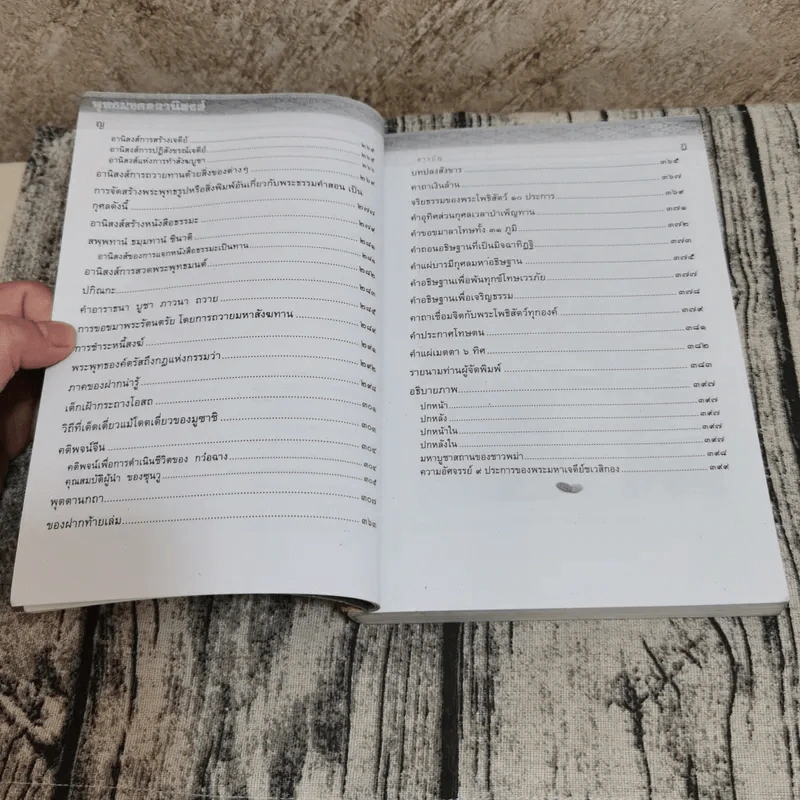 พุทธมงคลอานิสงส์
ญ
อานิสงส์การสร้างเจดีย์ ๒๖๙
อานิสงส์การปฏิสังขรณ์เจดีย์
อานิสงส์แห่งการทำสังฆบูชา
อานิสงส์การถวายทานด้วยสิ่งของต่างๆ ๒๖๙
การจัดสร้างพระพุทธรูปหรือสิ่งพิมพ์อันเกี่ยวกับพระธรรมคำสอน เป็น
กุศลดังนี้ ๒๗๗
อานิสงส์สร้างหนังสือธรรมะ
สพฺพทานํ ธมฺมทานํ ชินาติ ๒๘๑
อานิสงส์ของการแจกหนังสือธรรมะเป็นทาน
อานิสงส์การสวดพระพุทธมนต์ ๒๘๒
ปกิณกะ ๒๘๓
คำอาราธนา บูชา ภาวนา ถวาย ๒๘๕
การขอขมาพระรัตนตรัย โดยการถวายมหาสังฆทาน ๒๘๙
การชำระหนี้สงฆ์ ๒๙๑
พระพุทธองค์ตรัสถึงกฎแห่งกรรมว่า ๒๙๒
ภาคของฝากน่ารู้ ๒๙๘
เด็กเฝ้ากระถางไอสถ ๓๐๑
วิถีที่เด็ดเดี่ยวแม้โดดเดี่ยวของมูซาชิ
คติพจน์จีน ๓๐๔
คติพจน์เพื่อการดำเนินชีวิตของ กว๋อฉาง ๓๐๔
คุณสมบัติผู้นำ ของซุนวู ๓๐๕
พุตตานกถา ๓๐๗
ของฝากท้ายเล่ม ๓๖๓
สารบัญ ฎ
บทปลงสังขาร ๓๖๕
คาถาเงินล้าน ๓๖๗
จริยธรรมของพระโพธิสัตว์ ๑๐ ประการ ๓๖๙
คำอุทิศส่วนกุศลเวลาบำเพ็ญทาน ๓๗๑
คำขอขมาลาโทษทั้ง ๓๑ ภูมิ ๓๗๒
คำถอนอธิษฐานที่เป็นมิจฉาทิฏฐิ ๓๗๓
คำแผ่บารมีกุศลมหาอธิษฐาน ๓๗๕
คำอธิษฐานเพื่อพ้นทุกข์โทษเวรภัย ๓๗๗
คำอธิษฐานเพื่อเจริญธรรม ๓๗๘
คาถาเชื่อมจิตกับพระโพธิสัตว์ทุกองค์ ๓๗๙
คำประกาศโทษตน ๓๘๑
คำแผ่เมตตา ๖ ทิศ ๓๘๒
รายนามท่านผู้จัดพิมพ์ ๓๘๓
อธิบายภาพ ๓๙๗
ปกหน้า ๓๙๗
ปกหลัง ๓๙๗
ปกหน้าใน ๓๙๗
ปกหลังใน ๓๙๗
มหาบูชาสถานของชาวพม่า ๓๙๘
ความอัศจรรย์ ๙ ประการของพระมหาเจดีย์ชเวสิกอง ๓๙๙